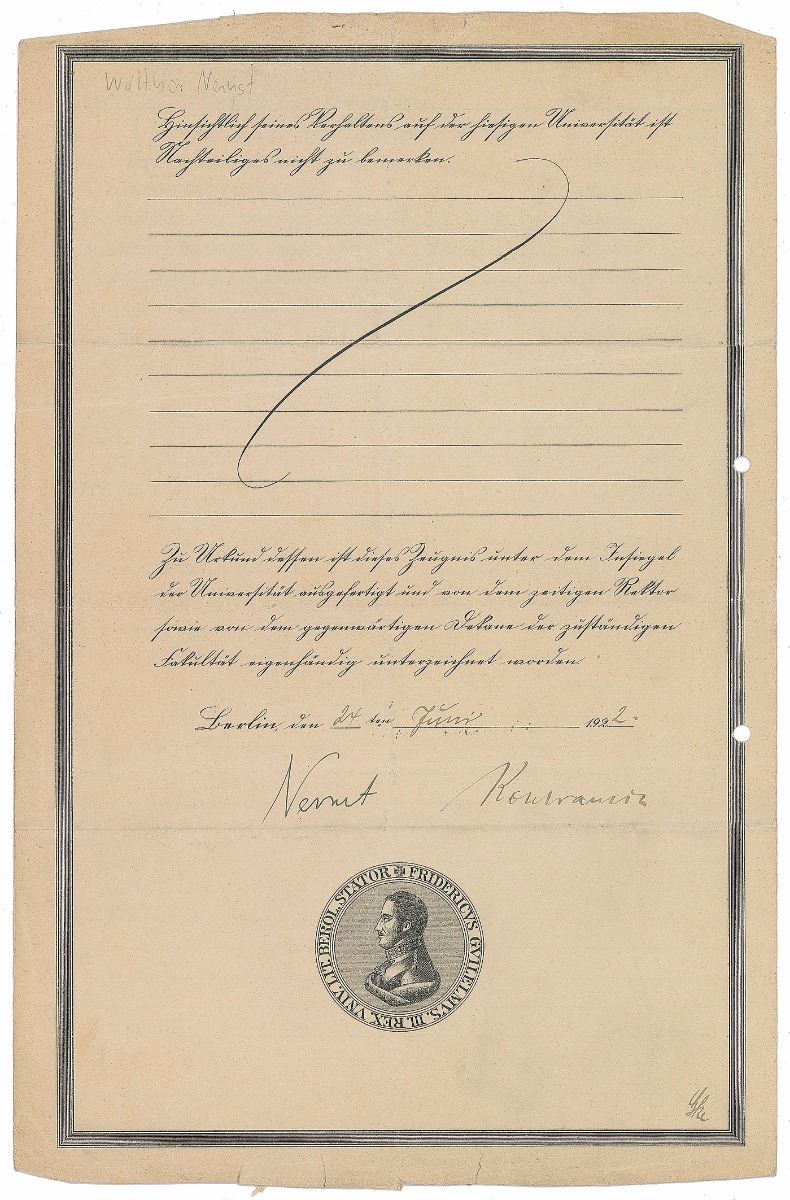 Walther Nernst
Hinsichtlich seines Verhaltens auf der hiesigen Universität ist
Nachteiliges nicht zu bemerken.
Zu Urkund dessen ist dieses Zeugnis unter dem Insiegel
der Universität ausgefertigt und von dem zeitigen Rektor
sowie von dem gegenwärtigen Dekane der zuständigen
Fakultät eigenhändig unterzeichnet worden.
Berlin, den 24 ten Juni 1922.
Nernst
FRIDERICVS GVILELMVS. III. REX VNIV. LIT. BEROL. STATOR